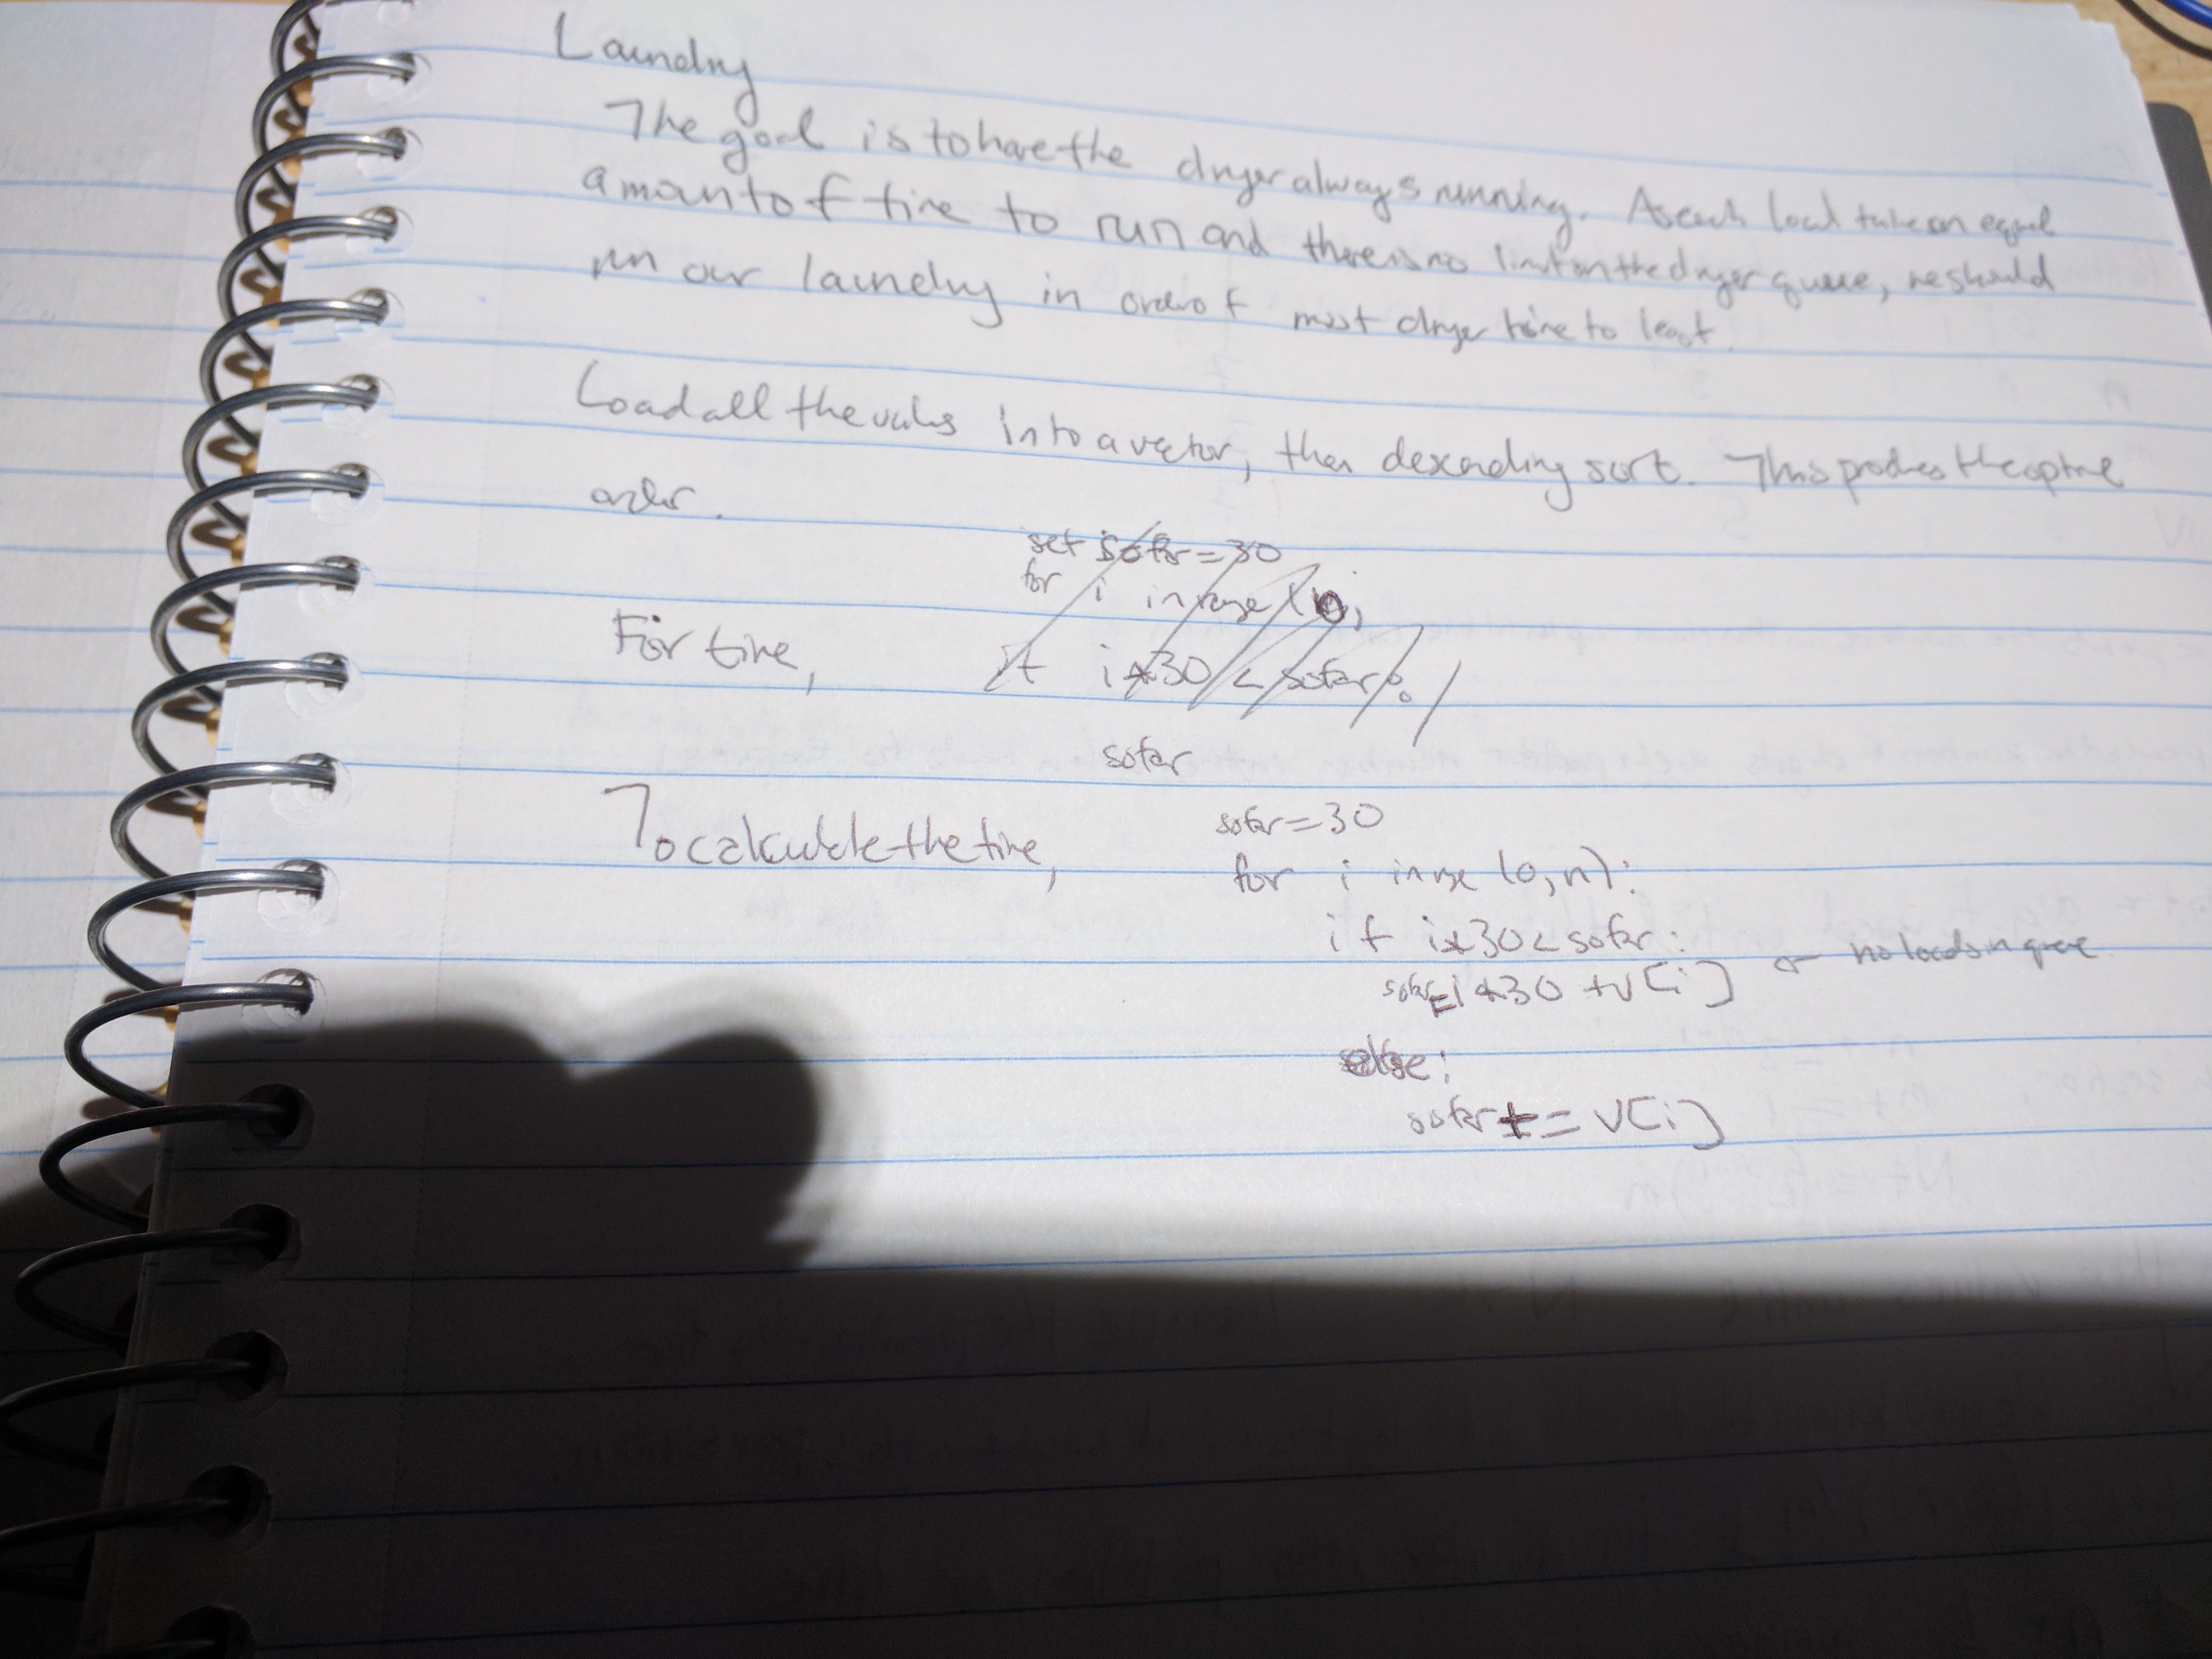 Laundry
The goal is to have the dryer always running. As each load takes an equal
amount of time to run and there is no limit on the dryer queue, we should
run our laundry in order of most dryer time to least.
Load all the values into a vector, then descending sort. This produces the optimal
order.
set sofar = 30
for i in range (0,
For time,
if i*30 < sofar:
sofar
To calculate the time,
sofar = 30
for i in range (0,n):
if i*30 < sofar:
sofar = i*30 + v[i] ← no loads in queue
else:
sofar += v[i]